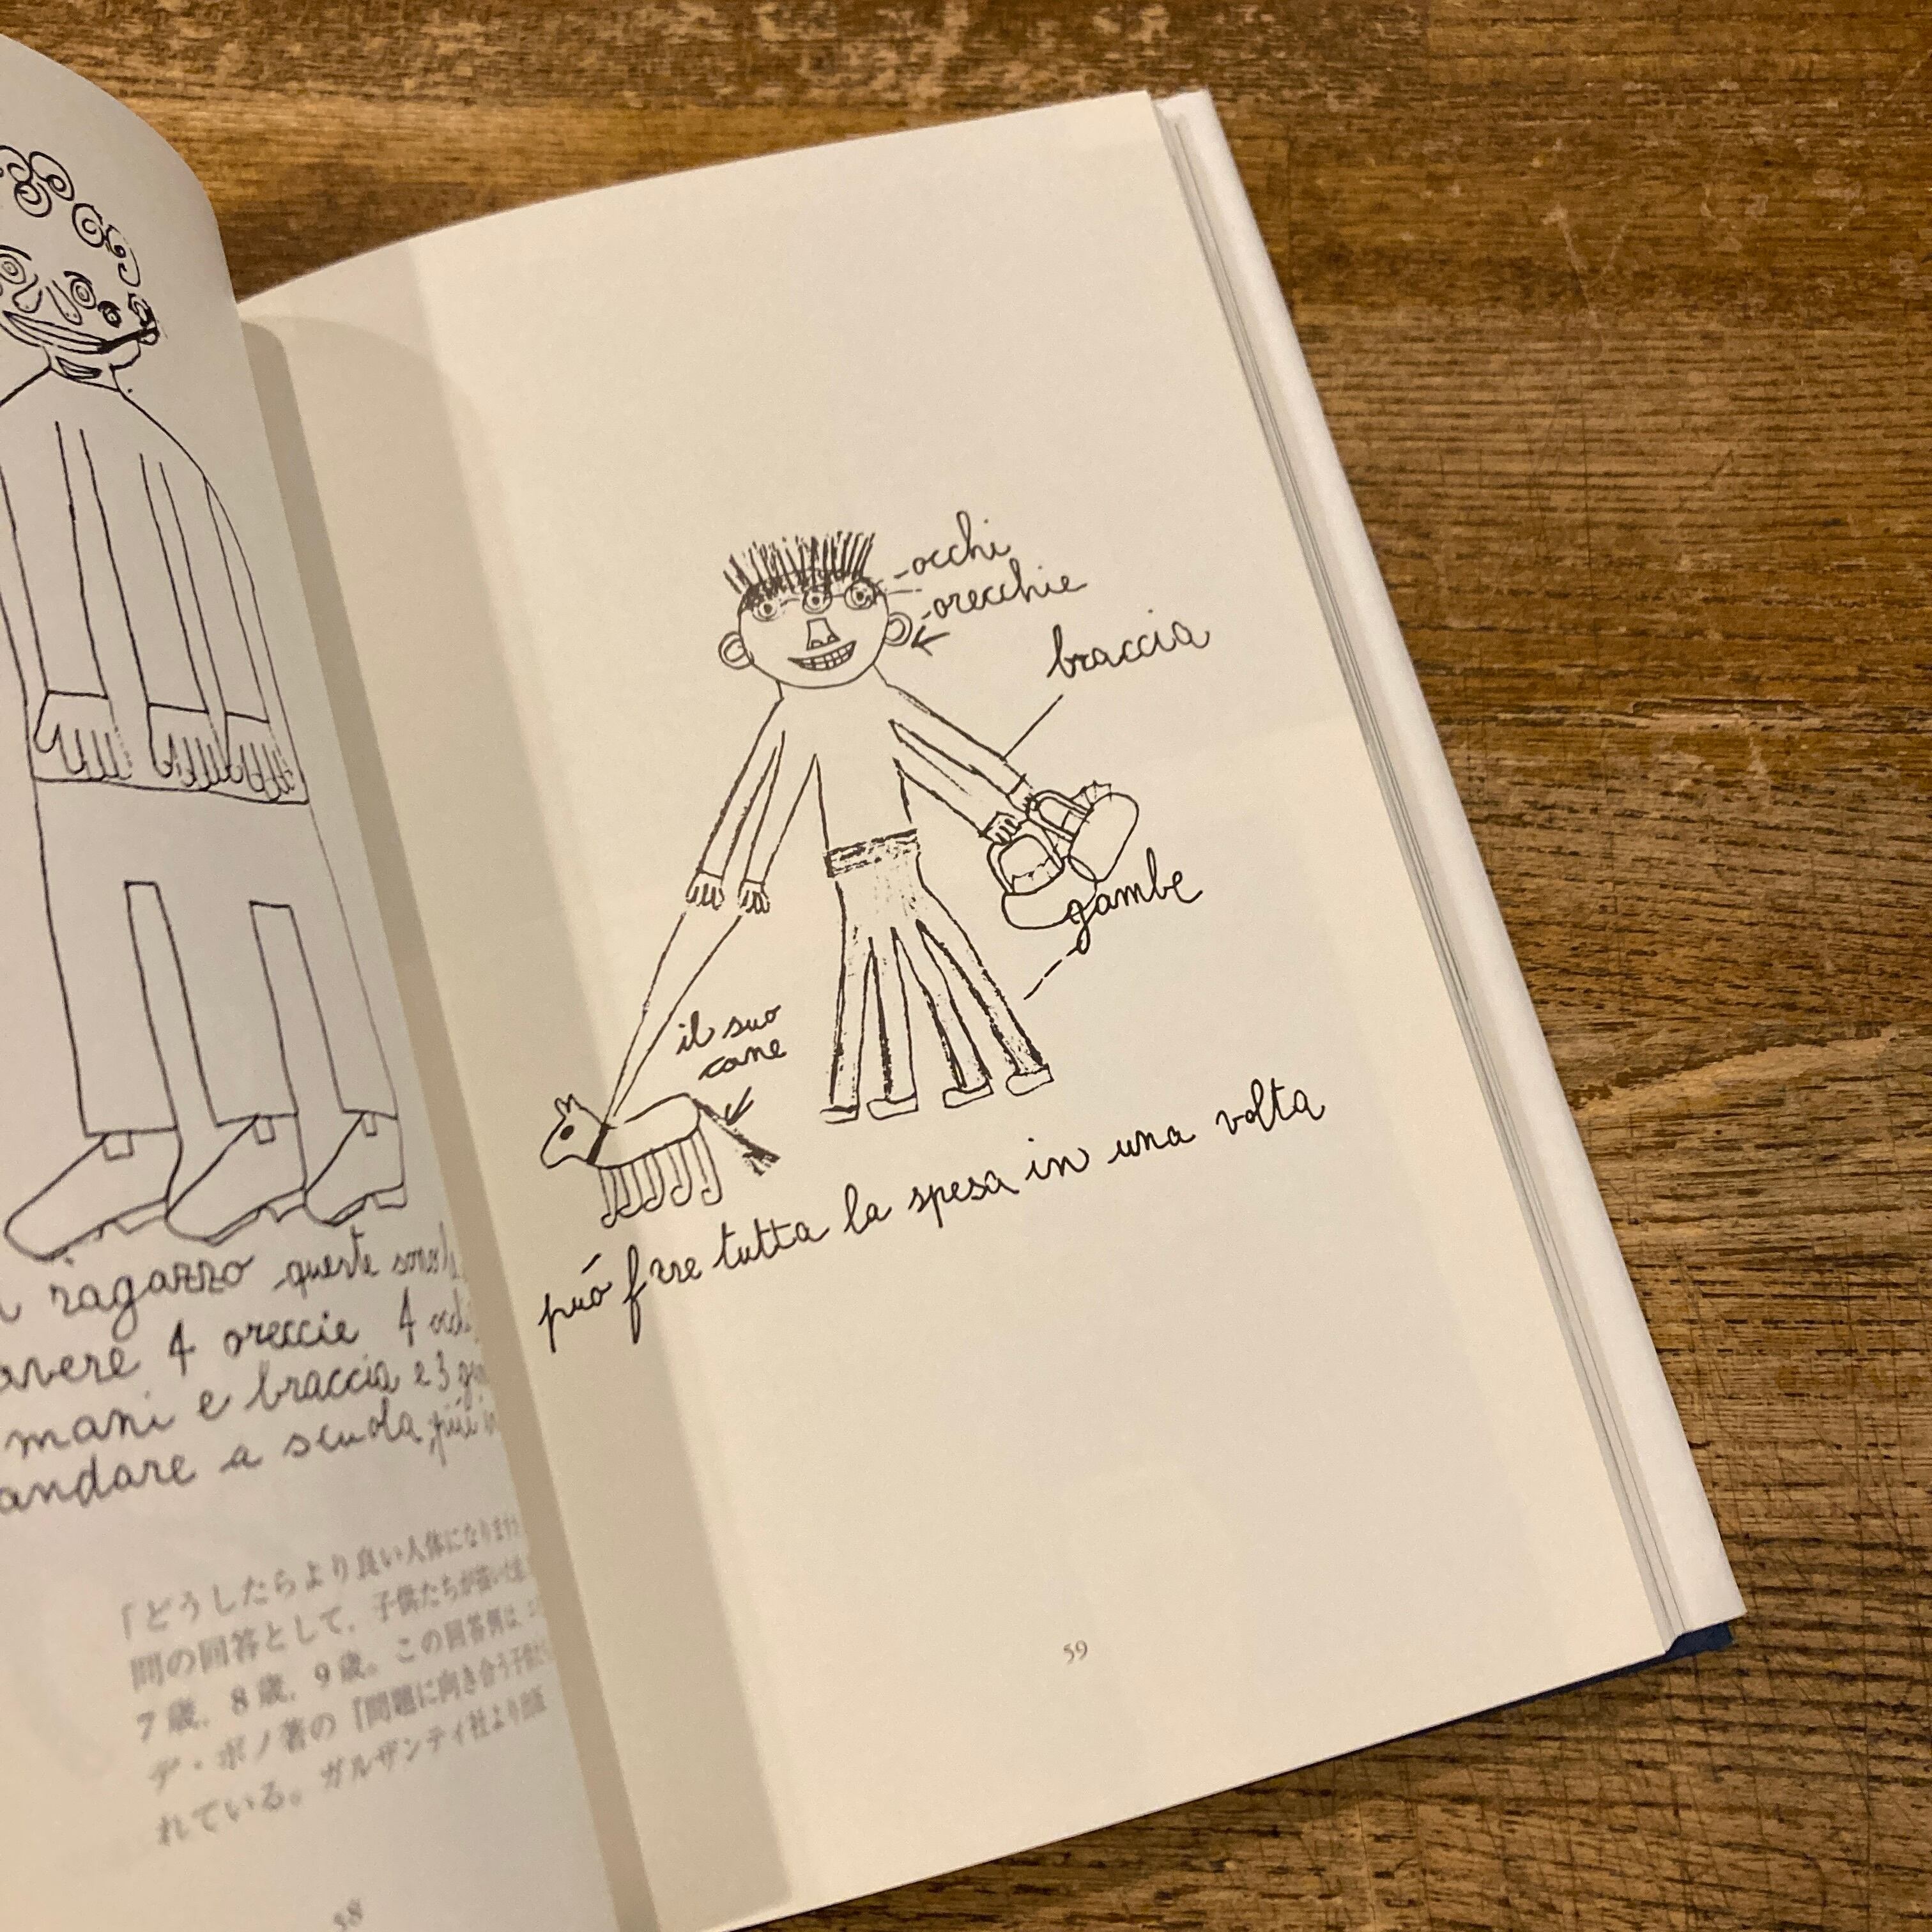 ragazzo queste sono
avere 4 oreccie 4
mani e braccia e 3
andare a scuola più
「どうしたらより良い人体になりますか
問の回答として、子供たちが描いた
7歳、8歳、9歳。この回答例は、
デ・ボノ著の『問題に向き合う子供た
れている。ガルザンティ社より出版
58
occhi
orecchie
braccia
gambe
il suo
cane
puó fare tutta la spesa in una volta
59